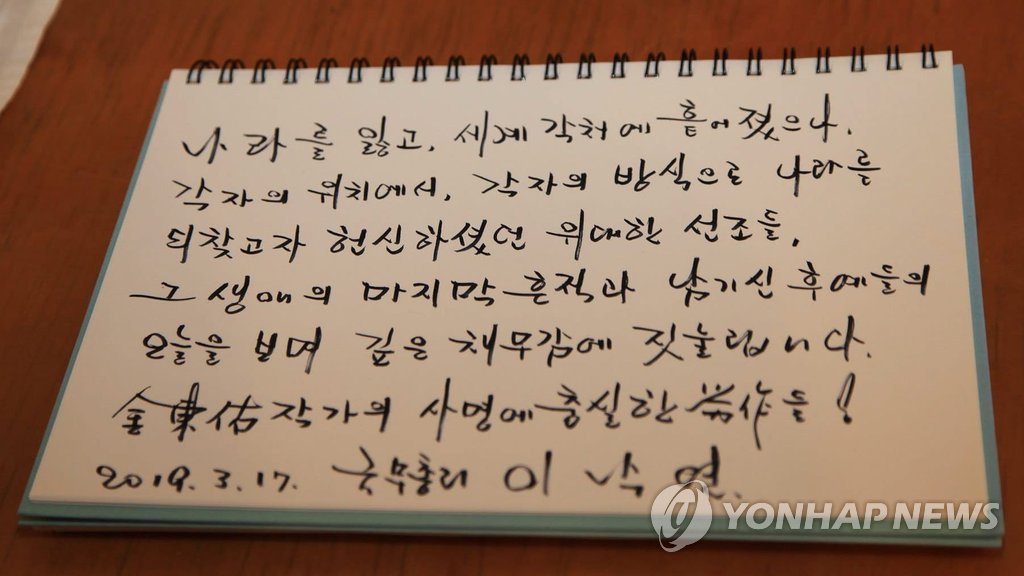 나라를 잃고, 세계 각처에 흩어졌으나,
각자의 위치에서, 각자의 방식으로 나라를
되찾고자 헌신하셨던 위대한 선조들,
그 생애의 마지막 흔적과 남기신 후예들의
오늘을 보며 깊은 채무감에 짓눌립니다.
金東佑 작가의 사명에 충실한 勞作들!
2019. 3. 17. 국무총리 이낙연.
YONHAP NEWS